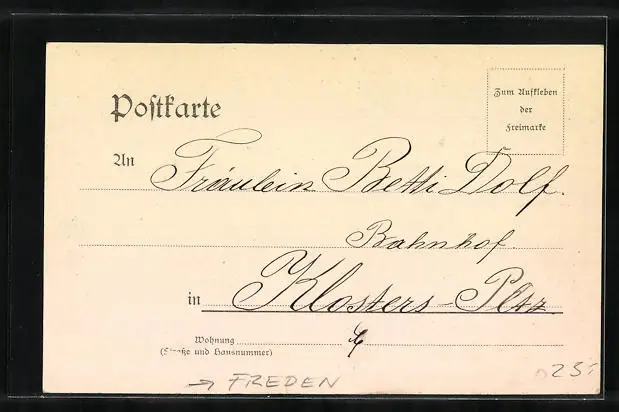 Postkarte
Zum Aufkleben
der
Freimarke
An Fräulein Betti Dolf.
Bahnhof
in Klosters-Pltz.
Wohnung
(Straße und Hausnummer)
→ FREDEN